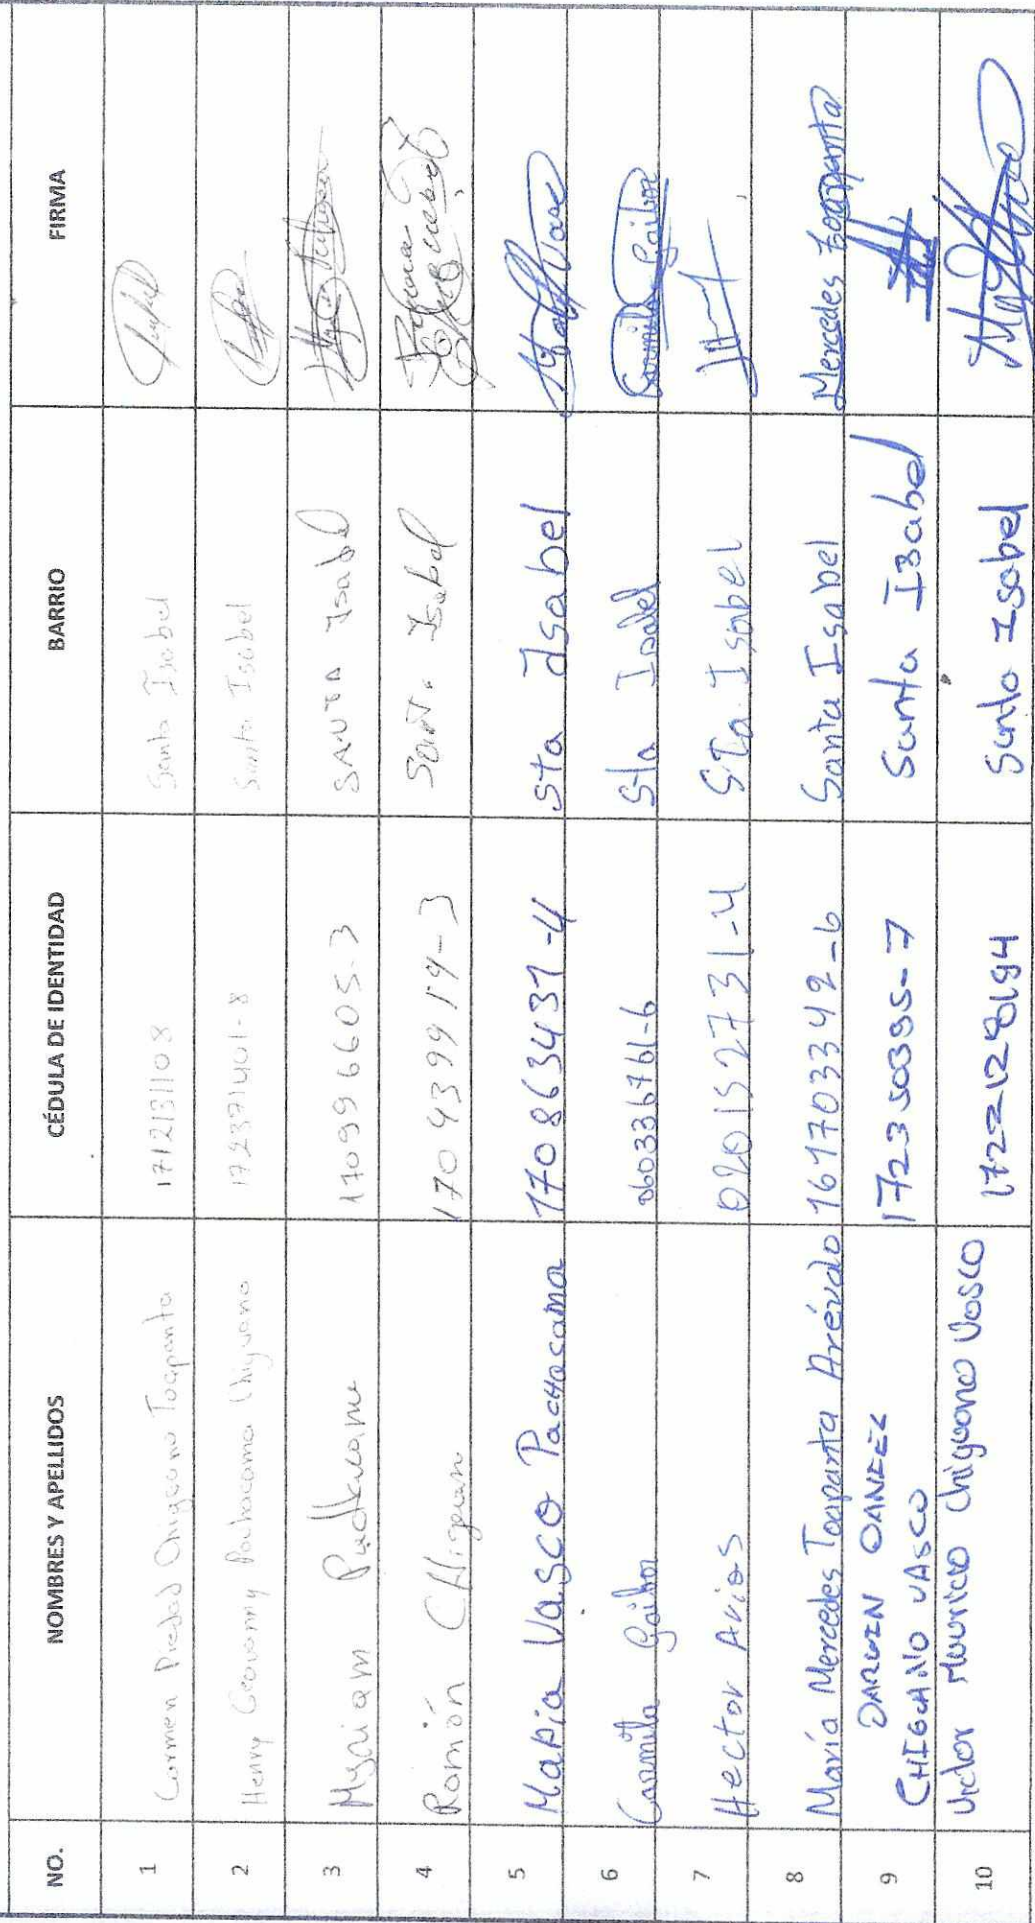 NO. NOMBRES Y APELLIDOS CÉDULA DE IDENTIDAD BARRIO FIRMA
1 Carmen Piedad Chiguano Toapanta 1712131108 Santa Isabel
2 Henry Geovanny Pachacama Chiguano 172371401-8 Santa Isabel
3 Myriam 170996605-3 SANTA Isabel
4 Ramón Chiguano 170439919-3 Sant. Isabel
5 Maria Vasco Pachacama 170863437-4 Sta Isabel
6 Carmita Gaibor 060336761-6 Sta Isabel Carmita Gaibor
7 Hector Arias 020152731-4 STa. Isabel
8 María Mercedes Toapanta Arévalo 161703342-6 Santa Isabel Mercedes Toapanta
9 DARWIN DANIEL
CHIGUANO VASCO 172350395-7 Santa Isabel
10 Victor Mauricio Chiguano Vasco Santa Isabel